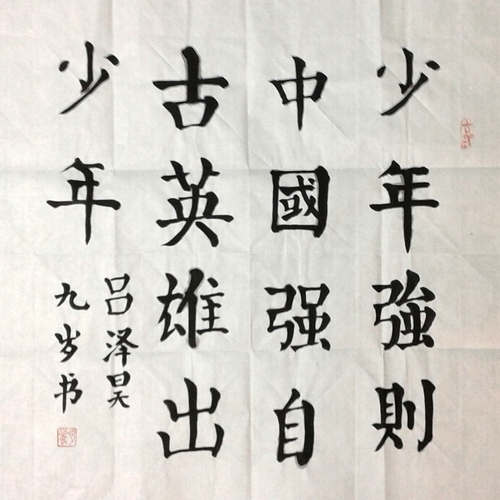 少年強則
中國强自
古英雄出
少年
吕泽昊
九岁书